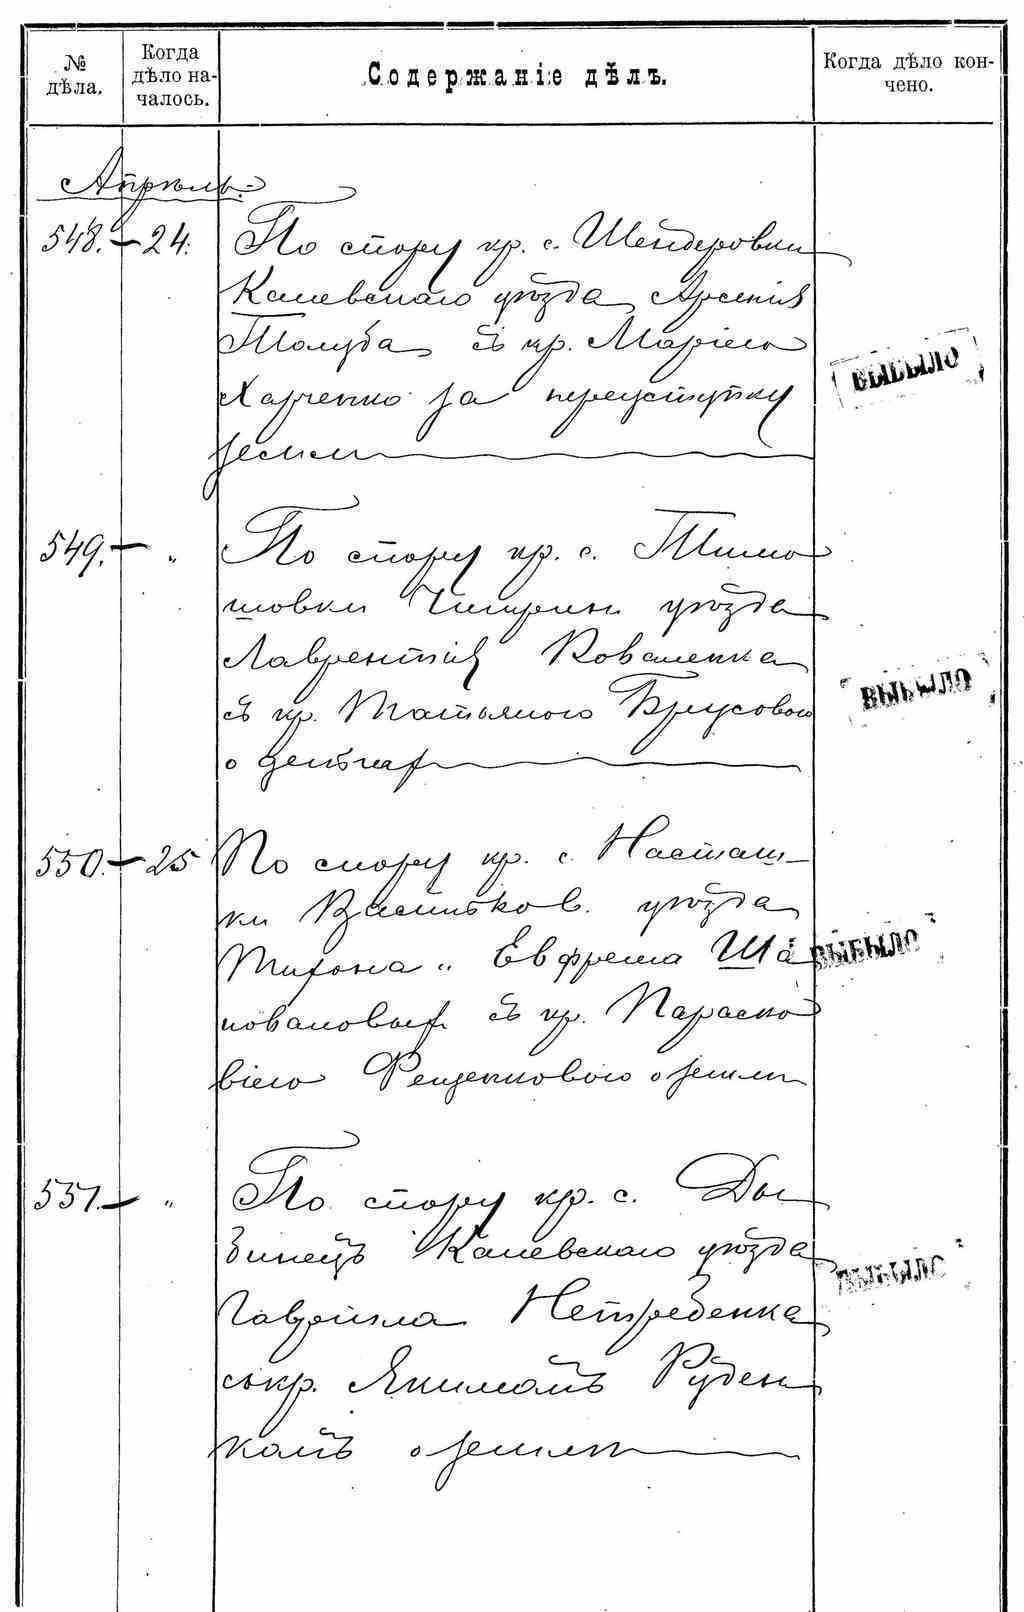 № дѣла.
Когда дѣло началось.
Содержаніе дѣлъ.
Когда дѣло кончено.
Апрѣль
548. 24. По спору кр. с. Шендеровки
Каневскаго уѣзда Арсенія
Голуба съ кр. Маріею
Харченко за переуступку
земли
549. " По спору кр. с. Тимо
шовки Чигрин. уѣзда
Лаврентія Коваленка
съ кр. Татьяною Брусовою
о деньгах
550. 25 По спору кр. с. Насташ-
ки Васильков. уѣзда
Тихона и Евфрема Ша
поваловых съ кр. Параско
віею о земли
551. " По спору кр. с. Ды
бинецъ Каневскаго уѣзда
Гавриила Нетребенка
съ кр. Якимомъ Руден
комъ о земли
ВЫБЫЛО
ВЫБЫЛО
ВЫБЫЛО
ВЫБЫЛО